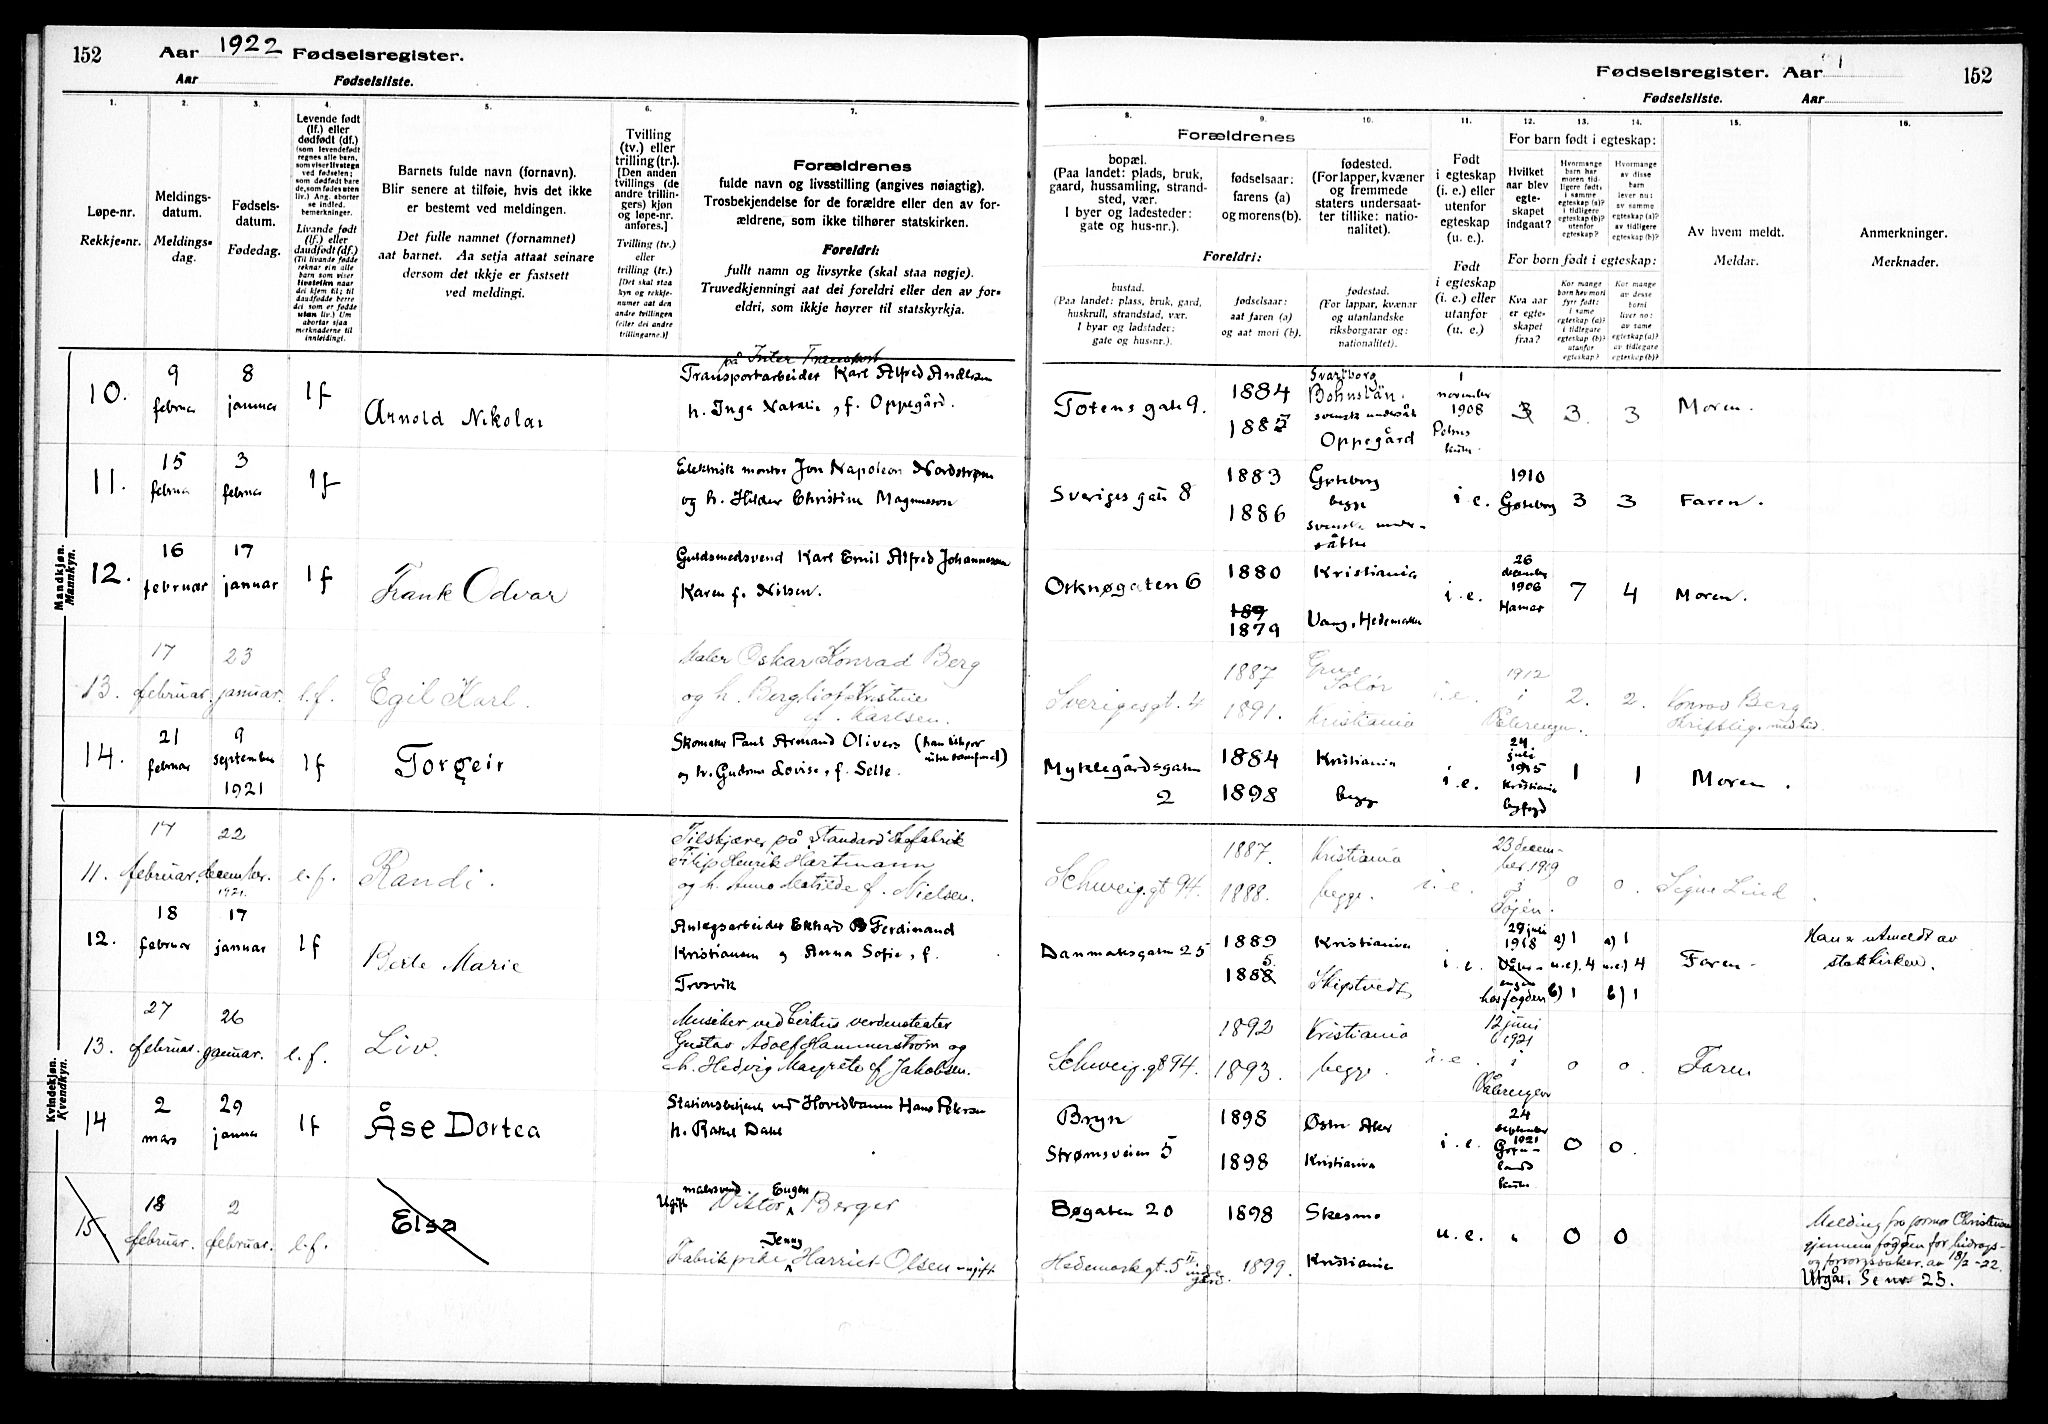 152 Aar 1922 Fødselsregister.
Aar Fødselsliste.
Fødselsregister. Aar 152
Fødselsliste. Aar
1. 2. 3. 4. 5. 6. 7. 8. 9. 10. 11. 12. 13. 14. 15. 16.
Løpe-nr.
Rekkje-nr.
Meldings-
datum.
Meldings-
dag.
Fødsels-
datum.
Fødedag.
Levende født
(lf.) eller
dødfødt (df.)
Livande født
(lf.) eller
daudfødt (df.)
Barnets fulde navn (fornavn).
Blir senere at tilføie, hvis det ikke
er bestemt ved meldingen.
Det fulle namnet (fornamnet)
aat barnet. Aa setja attaat seinare
dersom det ikkje er fastsett
ved meldingi.
Tvilling
(tv.) eller
trilling (tr.).
[Den anden
tvillings (de
andre trillin-
gers) kjøn
og løpe-nr.
anføres.]
Tvilling (tv.)
eller
trilling (tr.)
Forældrenes
fulde navn og livsstilling (angives nøiagtig).
Trosbekjendelse for de forældre eller den av for-
ældrene, som ikke tilhører statskirken.
Foreldri:
fullt namn og livsyrke (skal staa nøgje).
Truvedkjenningi aat dei foreldri eller den av for-
eldri, som ikkje høyrer til statskyrkja.
Forældrenes
bopæl.
(Paa landet: plads, bruk,
gaard, hussamling, strand-
sted, vær.
I byer og ladesteder:
gate og hus-nr.).
fødselsaar:
farens (a)
og morens (b).
fødested.
(For lapper, kvæner
og fremmede
staters undersaat-
ter tillike: natio-
nalitet).
Foreldri:
bustad.
(Paa landet: plass, bruk, gard,
huskrull, strandstad, vær.
I byar og ladstader:
gate og hus-nr.).
fødselsaar:
aat faren (a)
og aat mori (b).
fødestad.
(For lappar, kvænar
og utanlandske
riksborgarar og:
nationalitet).
Født
i egteskap
(i. e.) eller
utenfor
egteskap
(u. e.).
Født
i egteskap
(i. e.) eller
utanfor
(u. e.).
For barn født i egteskap:
Hvilket
aar blev
egte-
skapet
indgaat?
For born født i egteskap:
Kva aar
er egte-
skapet
fraa?
Av hvem meldt.
Meldar.
Anmerkninger.
Merknader.
Mandkjøn.
Mannkyn.
10. 9 februar 8 januar lf Arnold Nikolai
på Inter Transport
Transportarbeider Karl Alfred Andersen
h. Inga Natalie, f. Oppegård.
Totens gate 9. 1884 Svarteborg Bohuslän. svensk undersåt Oppegård 1 november 1908 3 3. 3 Moren.
11. 15 februar 3 februar lf
Elektrisk montør Jon Napoleon Nordstrøm
og h. Hilder Christine Magnusson
Sveriges gate 8 1883 1886 Gøteborg begge svenske under-såtter i. e. 1910 Gøteborg 3 3 Faren.
12. 16 februar 17 januar lf Frank Odvar
Guldsmedsvend Karl Emil Alfred Johannesen
Karen f. Nilsen.
Orknøgaten 6 1880 189 1879 Kristiania Vang, Hedemarken i. e. 26 december 1906 Hamar 7 4 Moren.
13. 17 februar. 23 januar. l.f. Egil Karl.
Maler Oskar Konrad Berg
og h. Bergliot Kristine
f. Karlsen.
Sverigesgt. 4 1887 1891. Grue Solør Kristiania i. e. 1912 i Vålerengen. 2. 2. Konrad Berg
14. 21 februar 9 september 1921 lf Torgeir
Skomaker Paul Armand Olivers
og h. Gudrun Lovise, f. Selte.
Myklegårdsgaten 2 1884 1898 Kristiania begge i. e. 24 juli 1915 Kristiania byfogd 1 1 Moren.
Kvindekjøn.
Kvendkyn.
11. 17 februar. 22 december. 1921. l.f. Randi.
Tilskjærer på Standard Skofabrik
Filip Henrik Hartmann
og h. Anna Matilde f. Nielsen.
Schweig. gt 94. 1887. 1888. Kristiania begge. i. e. 23 decem-ber 1919 i Tøyen. 0 0. Signe Lind
12. 18 februar 17 januar lf Berle Marie
Anlegsarbeider Ekhard Ferdinand
Kristiansen og Anna Sofie, f.
Trosvik
Danmarksgaten 25 1889 1885 Kristiania Skiptvedt i. e. 29 juli 1918 hos fogden a) 1 u.e). 4 b) 1 a) 1 u.e) 4 b) 1 Faren. Han er utmeldt av statskirken.
13. 27 februar. 26 januar. l.f. Liv.
Musiker ved Cirkus verdensteater
Gustav Adolf Hammerstrøm og
h. Hedvig Margrete f. Jakobsen.
Schweig. gt 94. 1892 1893. Kristiania begge. i. e. 12 juni 1921 i Vålerengen 0 0. Faren
14 2 mars 29 januar lf Åse Dortea
Stationsbetjent ved Hovedbanen Hans Petersen
h. Rakel Dahl
Bryn Strømsveien 5 1898 1898 Østre Aker Kristiania i. e. 24 september 1921 Grøn-lands kirke 0 0.
15. 18 februar. 2 februar. l.f. Elsa
Ugift malersvend Viktor Eugen Berger
Fabrikpike Jenny Harriet Olsen ugift
Bøgaten 20 Hedemarkgt. 5 II 1898 1899. Skesmo Kristiania u. e. " 0 0
Melding fra formor Christiansen
gjennem fogden for bidrags-
og forsorgssaker. av 18/2-22.
Utgår. Se nr 25.